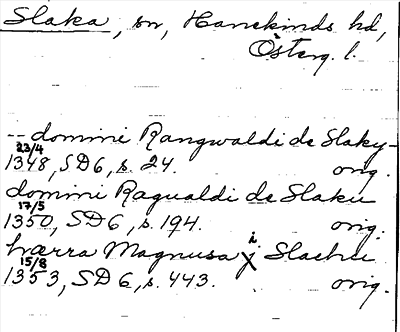 Slaka, sn, Hanekinds hd,
Österg. l.
-- domini Rangwaldi de Slaky -
23/4
1348, SD 6, s. 24. orig.
domini Ragualdi de Slaku
17/5
1350, SD 6, s. 194. orig.
hærra Magnusa i Slachu
15/8
1353, SD 6, s. 443. orig.